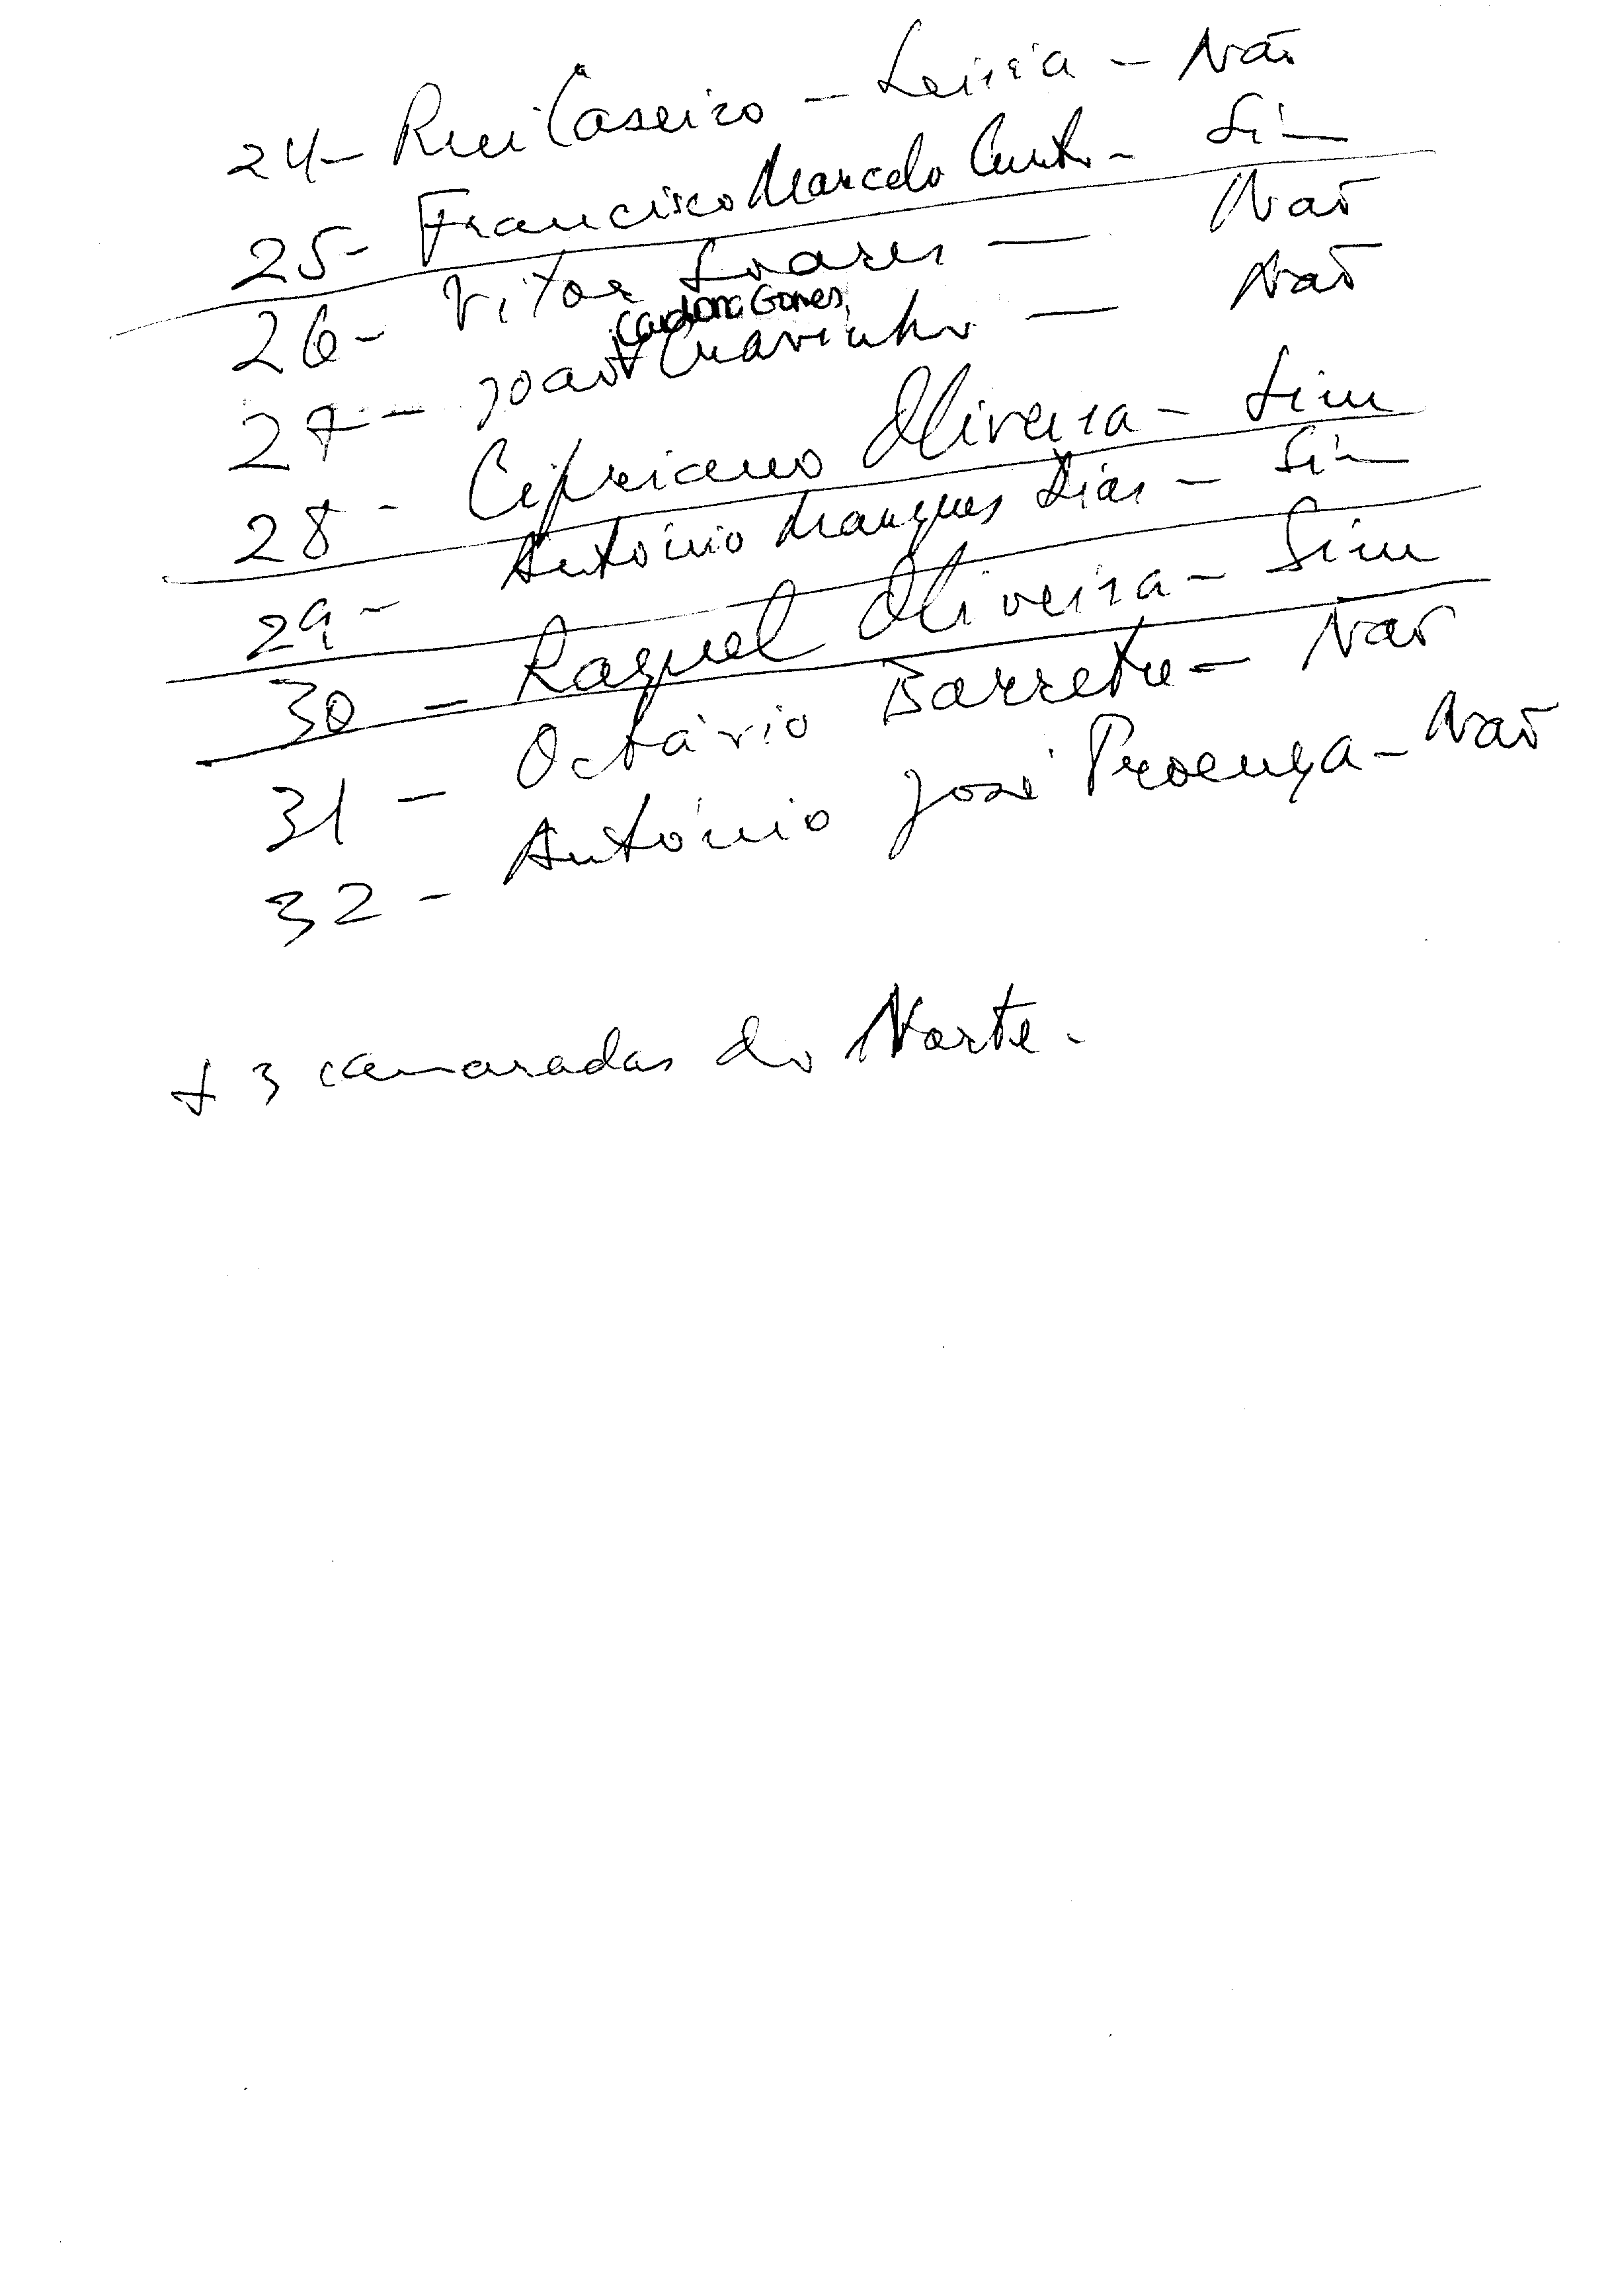 24 - Rui Caseiro - Leiria - Não
25 - Francisco Marcelo Curto - Sim
26 - Vitor Soares — Não
Cardona Gomes
27 - João Cravinho — Não
28 - Cipriano Oliveira - Sim
29 - António Marques Dias - Sim
30 - Raquel Oliveira - Sim
31 - Octávio Barreto - Não
32 - António José Proença - Não
+ 3 camaradas do Norte.